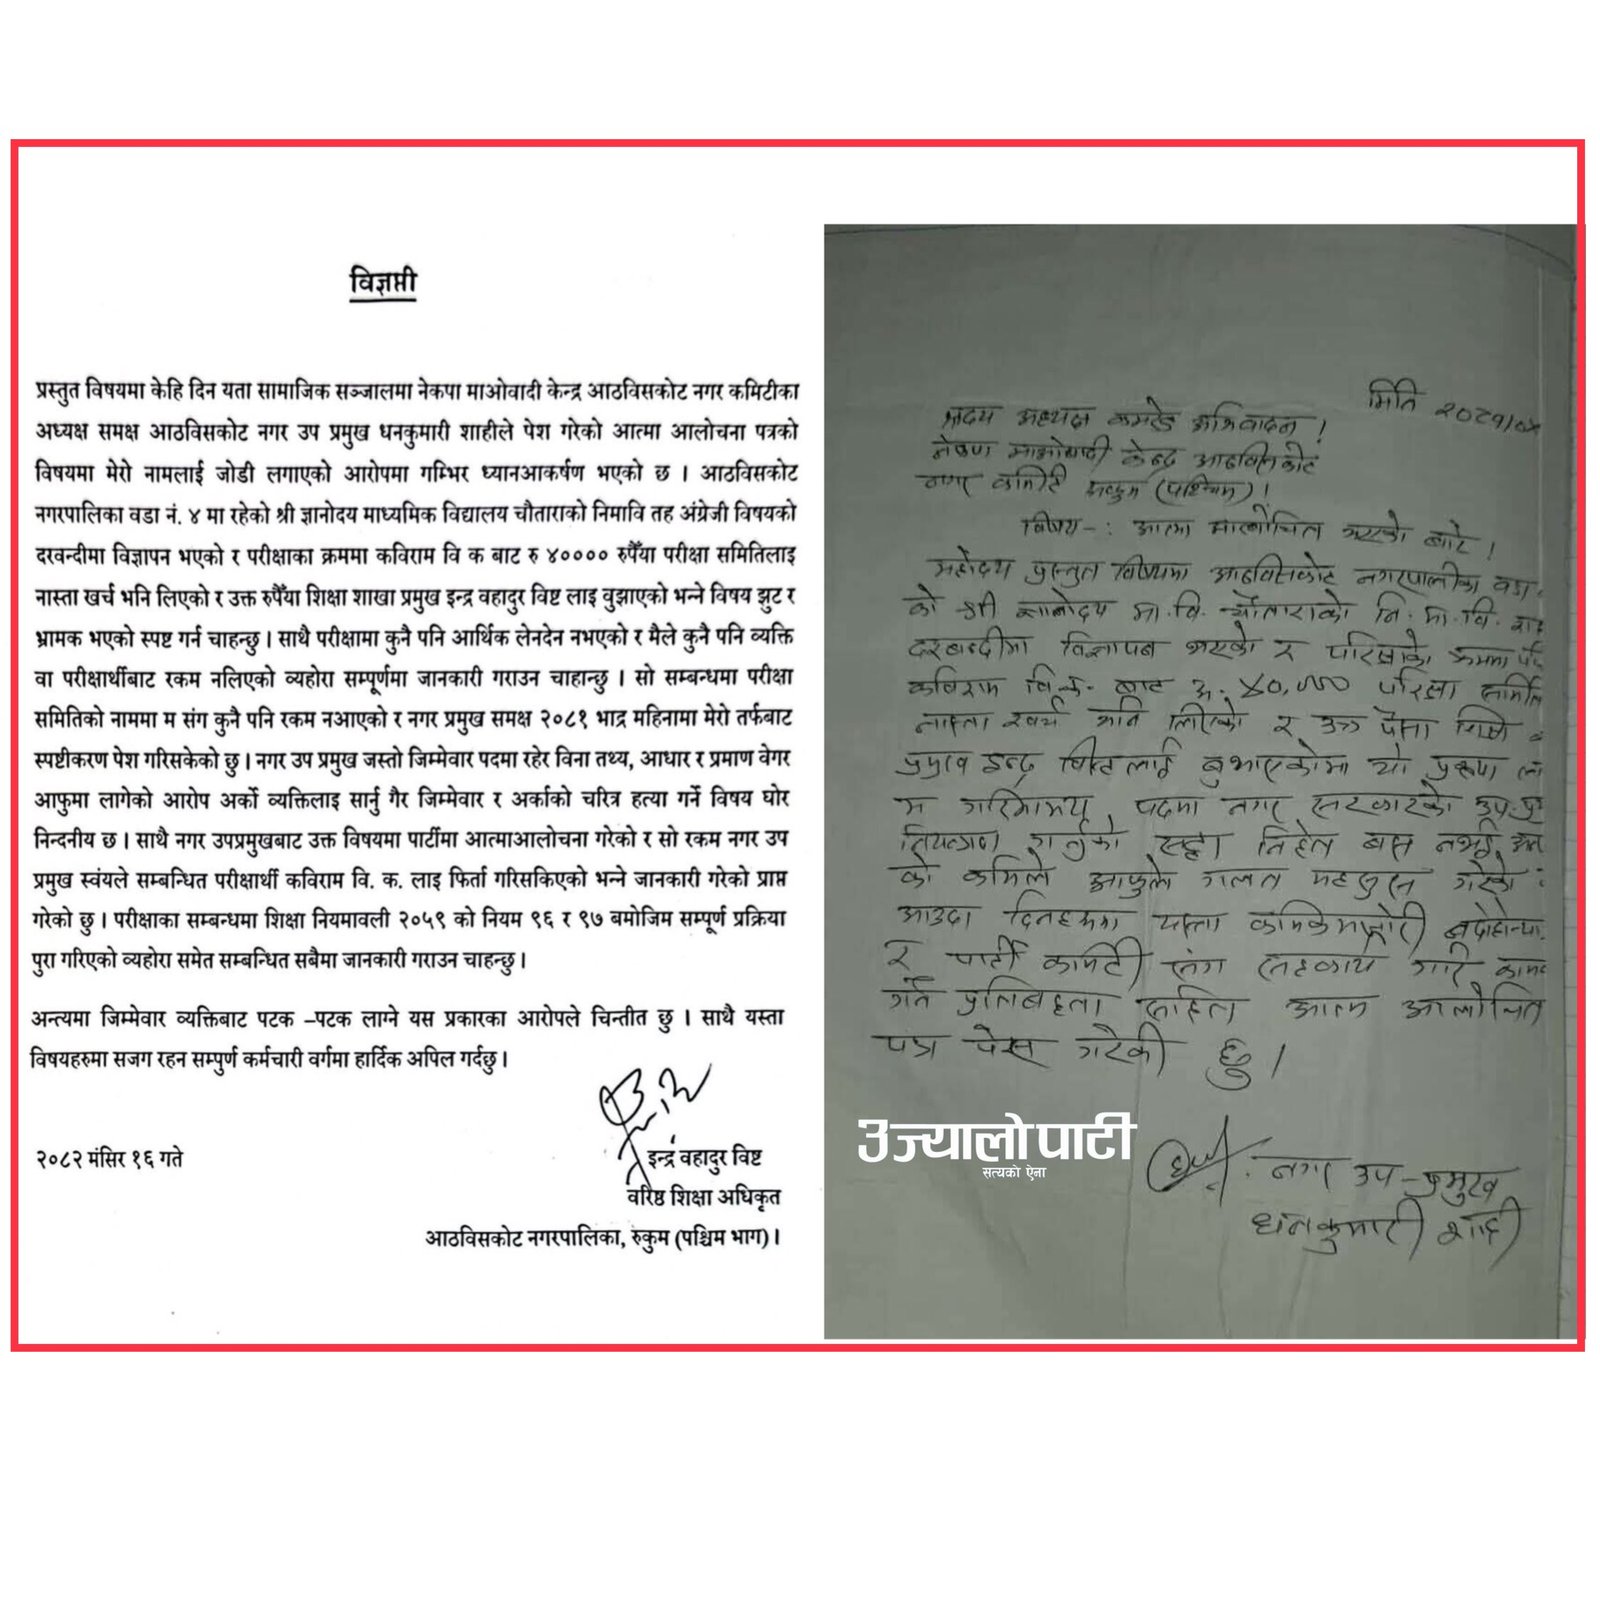 विज्ञप्ती
प्रस्तुत विषयमा केहि दिन यता सामाजिक सञ्जालमा नेकपा माओवादी केन्द्र आठविसकोट नगर कमिटीका
अध्यक्ष समक्ष आठविसकोट नगर उप प्रमुख धनकुमारी शाहीले पेश गरेको आत्मा आलोचना पत्रको
विषयमा मेरो नामलाई जोडी लगाएको आरोपमा गम्भिर ध्यानआकर्षण भएको छ । आठविसकोट
नगरपालिका वडा नं. ४ मा रहेको श्री ज्ञानोदय माध्यमिक विद्यालय चौताराको निमावि तह अंग्रेजी विषयको
दरवन्दीमा विज्ञापन भएको र परीक्षाका क्रममा कविराम वि क बाट रु ४०००० रुपैँया परीक्षा समितिलाइ
नास्ता खर्च भनि लिएको र उक्त रुपैँया शिक्षा शाखा प्रमुख इन्द्र वहादुर विष्ट लाइ वुझाएको भन्ने विषय झुट र
भ्रामक भएको स्पष्ट गर्न चाहन्छु । साथै परीक्षामा कुनै पनि आर्थिक लेनदेन नभएको र मैले कुनै पनि व्यक्ति
वा परीक्षार्थीबाट रकम नलिएको व्यहोरा सम्पूर्णमा जानकारी गराउन चाहान्छु । सो सम्बन्धमा परीक्षा
समितिको नाममा म संग कुनै पनि रकम नआएको र नगर प्रमुख समक्ष २०८१ भाद्र महिनामा मेरो तर्फबाट
स्पष्टीकरण पेश गरिसकेको छु । नगर उप प्रमुख जस्तो जिम्मेवार पदमा रहेर विना तथ्य, आधार र प्रमाण वेगर
आफुमा लागेको आरोप अर्को व्यक्तिलाइ सार्नु गैर जिम्मेवार र अर्काको चरित्र हत्या गर्ने विषय घोर
निन्दनीय छ । साथै नगर उपप्रमुखबाट उक्त विषयमा पार्टीमा आत्माआलोचना गरेको र सो रकम नगर उप
प्रमुख स्वंयले सम्बन्धित परीक्षार्थी कविराम वि. क. लाइ फिर्ता गरिसकिएको भन्ने जानकारी गरेको प्राप्त
गरेको छु । परीक्षाका सम्बन्धमा शिक्षा नियमावली २०५९ को नियम ९६ र ९७ बमोजिम सम्पूर्ण प्रक्रिया
पुरा गरिएको व्यहोरा समेत सम्बन्धित सबैमा जानकारी गराउन चाहन्छु ।
अन्त्यमा जिम्मेवार व्यक्तिबाट पटक –पटक लाग्ने यस प्रकारका आरोपले चिन्तीत छु । साथै यस्ता
विषयहरुमा सजग रहन सम्पुर्ण कर्मचारी वर्गमा हार्दिक अपिल गर्दछु ।
२०८२ मंसिर १६ गते
इन्द्र वहादुर विष्ट
वरिष्ठ शिक्षा अधिकृत
आठविसकोट नगरपालिका, रुकुम (पश्चिम भाग) ।
मिति २०८१/०५
अध्यक्ष कमरेड अभिवादन !
माओवादी केन्द्र आठविसकोट
नगर कमिटी रुकुम (पश्चिम) ।
विषय -: आत्मा भएको बारे !
महोदय प्रस्तुत विषयमा आठविसकोट नगरपालीका वडा
को श्री ज्ञानोदय मा.वि. चौताराको नि.मा.वि.
दरबन्दीमा विज्ञापन भएको र परिक्षाको क्रममा
कविराम वि.क. बाट रु. ४०,००० परिक्षा समिति
नास्ता खर्च भनि लिएको र उक्त पैसा
प्रमुख इन्द्र विष्टलाई बुझाएकोमा यो
म गरिमामय पदमा नगर सरकारको उप-प्र
नियन्त्रण गर्नुको सट्टा
को कमिले आफुले गलत महसुस गरेको
आउदा दिनहरुमा यस्ता कमिकमजोरी
र पार्टी कमिटी संग सहकार्य गरि काम
गर्ने प्रतिबद्दता सहित आत्म आलोचित
पत्र पेस गरेकी छु ।
उज्यालो पाटी
सत्यको ऐना
नगर उप-प्रमुख
धनकुमारी शाही